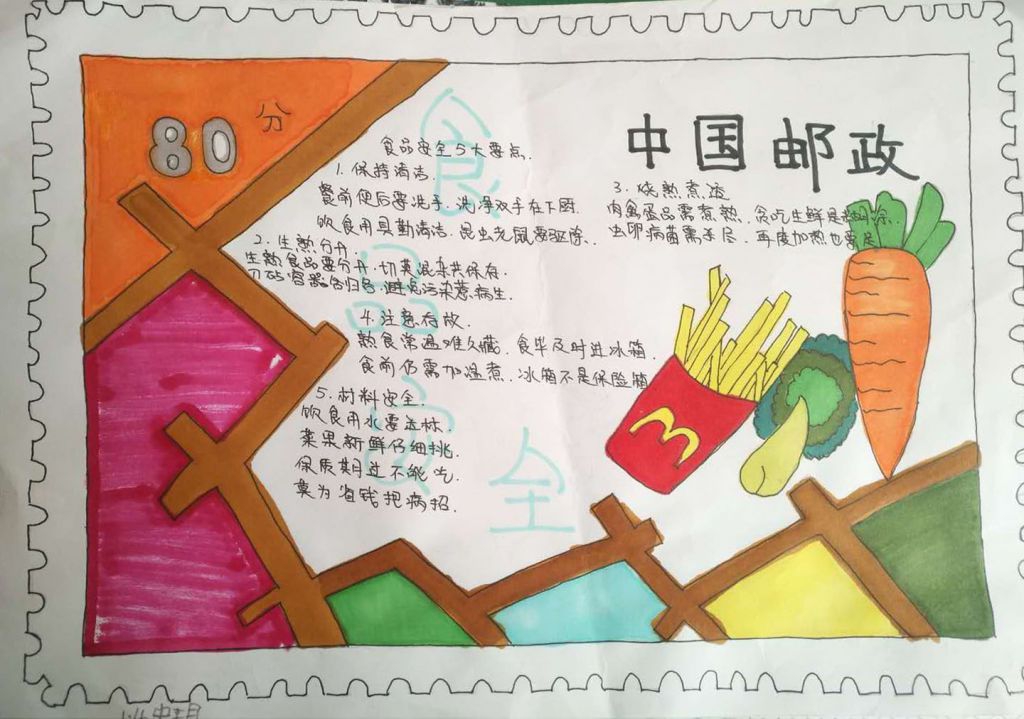 80分
中国邮政
食品安全
食品安全5大要点.
1. 保持清洁.
餐前便后要洗手. 洗净双手在下厨.
饮食用具勤清洁. 昆虫老鼠要驱除.
2. 生熟分开.
生熟食品要分开. 切莫混杂共保存.
刀砧容器各归各. 避免污染惹病生.
3. 烧熟煮透
肉禽蛋品需煮熟. 贪吃生鲜是糊涂.
虫卵病菌需杀尽. 再度加热也要足
4. 注意存放.
熟食常温难久藏. 食毕及时进冰箱.
食前仍需加温煮. 冰箱不是保险箱
5. 材料安全.
饮食用水要达标.
菜果新鲜仔细挑.
保质期过不能吃.
莫为省钱把病招.